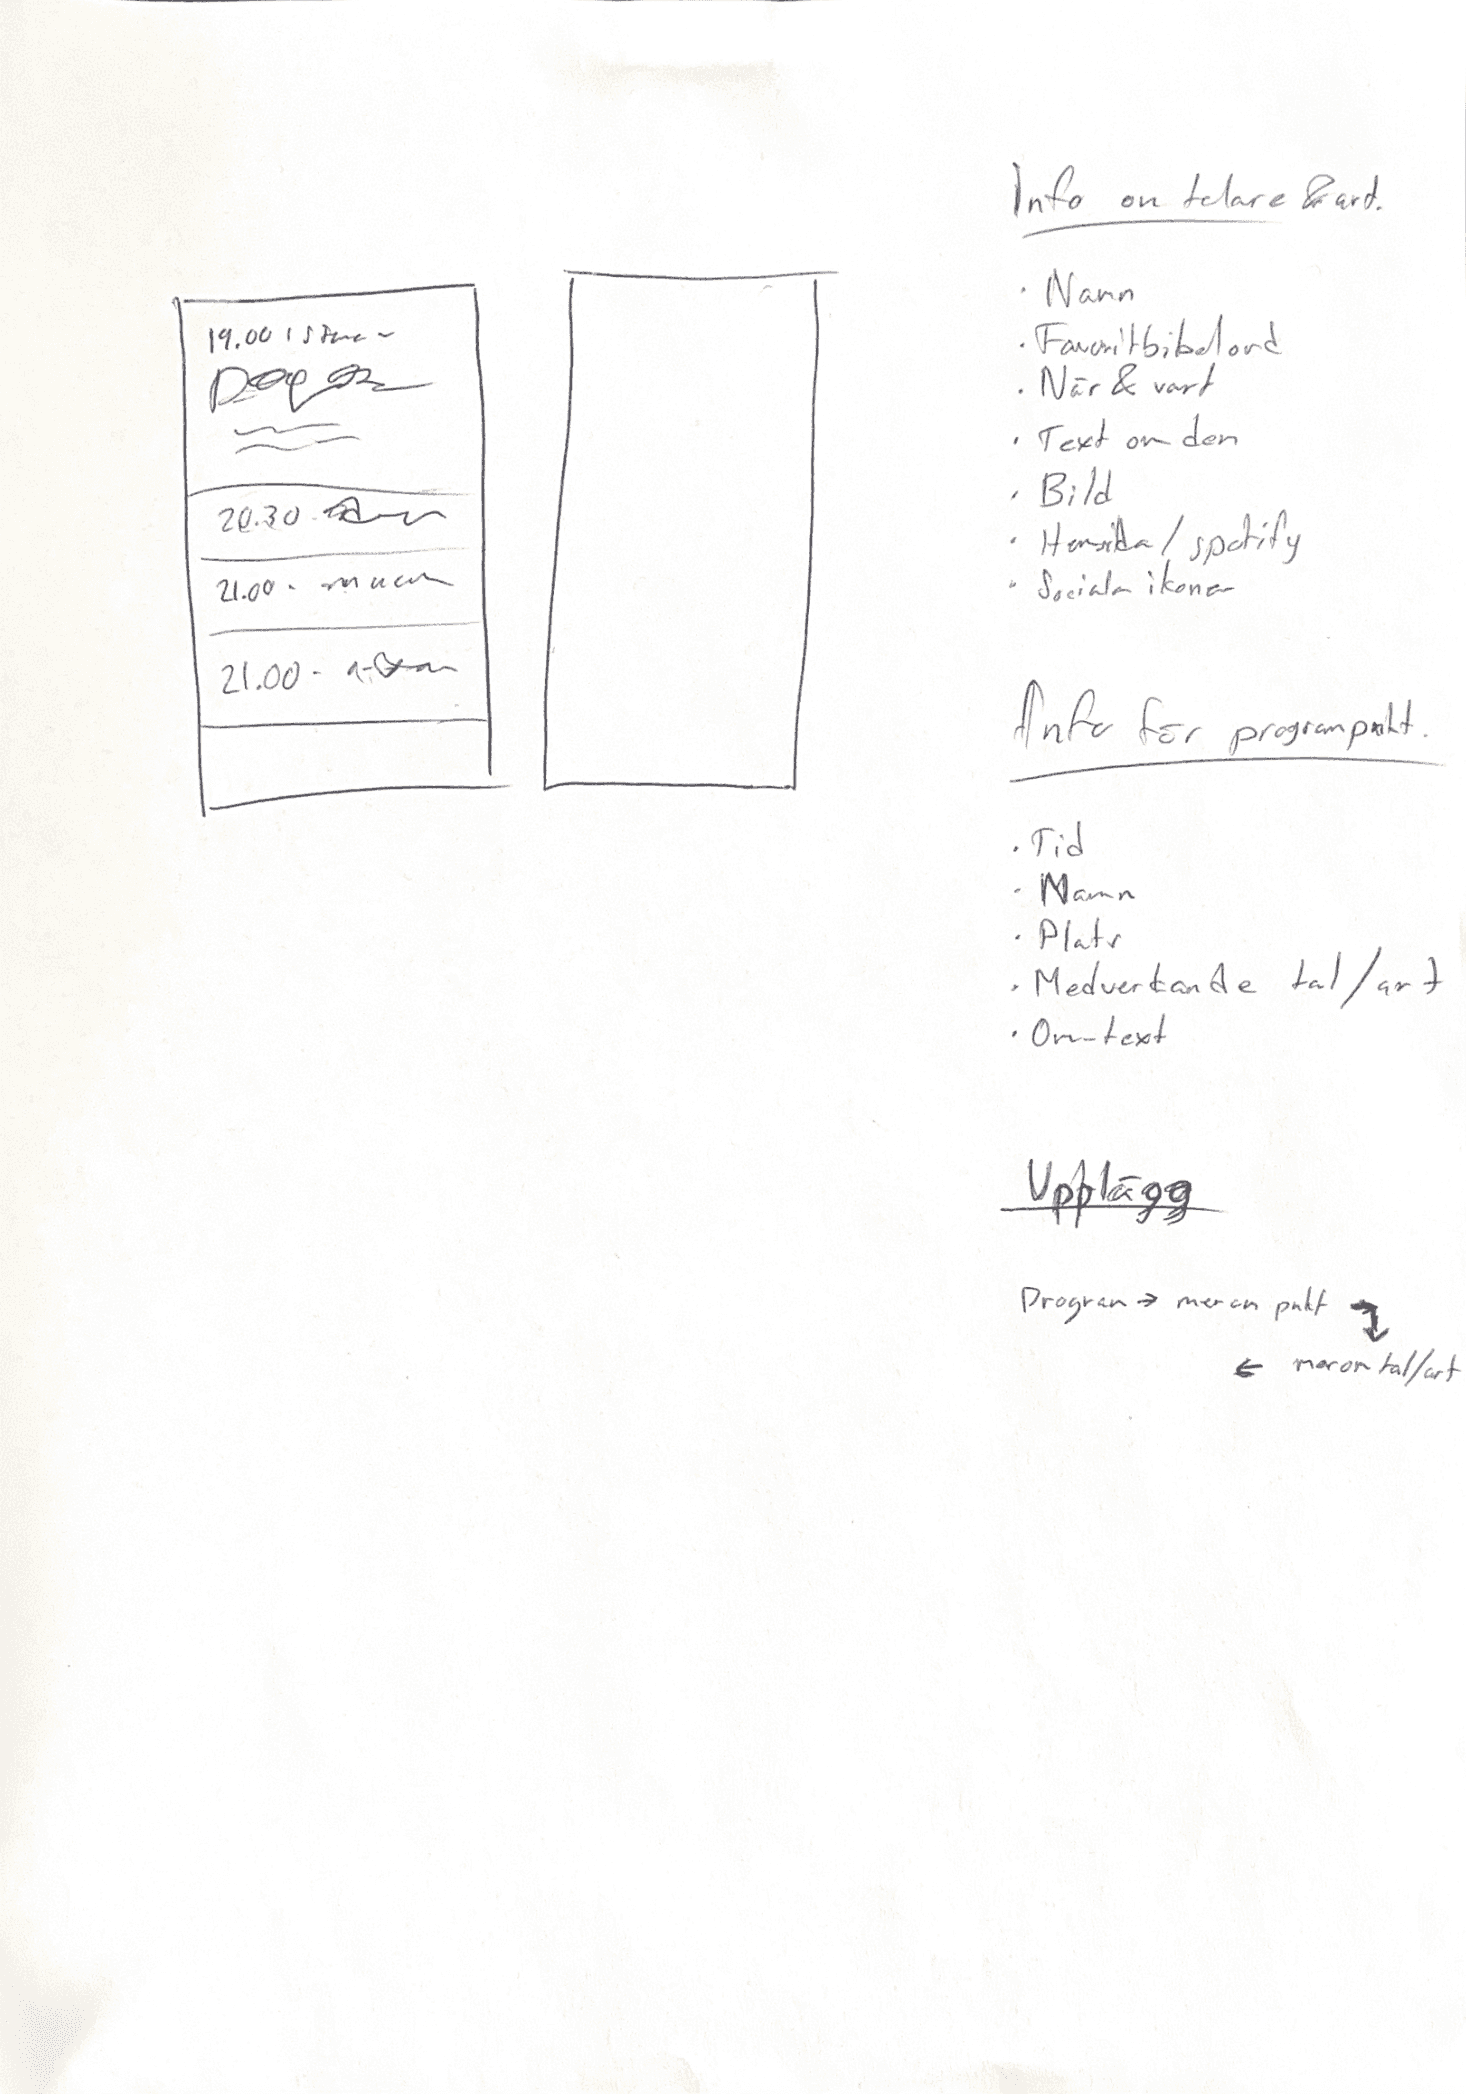 19.00 |
20.30 -
21.00 -
21.00 -
Info om talare & art.
· Namn
· Favoritbibelord
· När & vart
· Text om den
· Bild
· Hemsida / spotify
· Sociala ikoner
Info för programpunkt.
· Tid
· Namn
· Plats
· Medverkande tal/art
· Om-text
Upplägg
Program → mer om punkt
← mer om tal/art